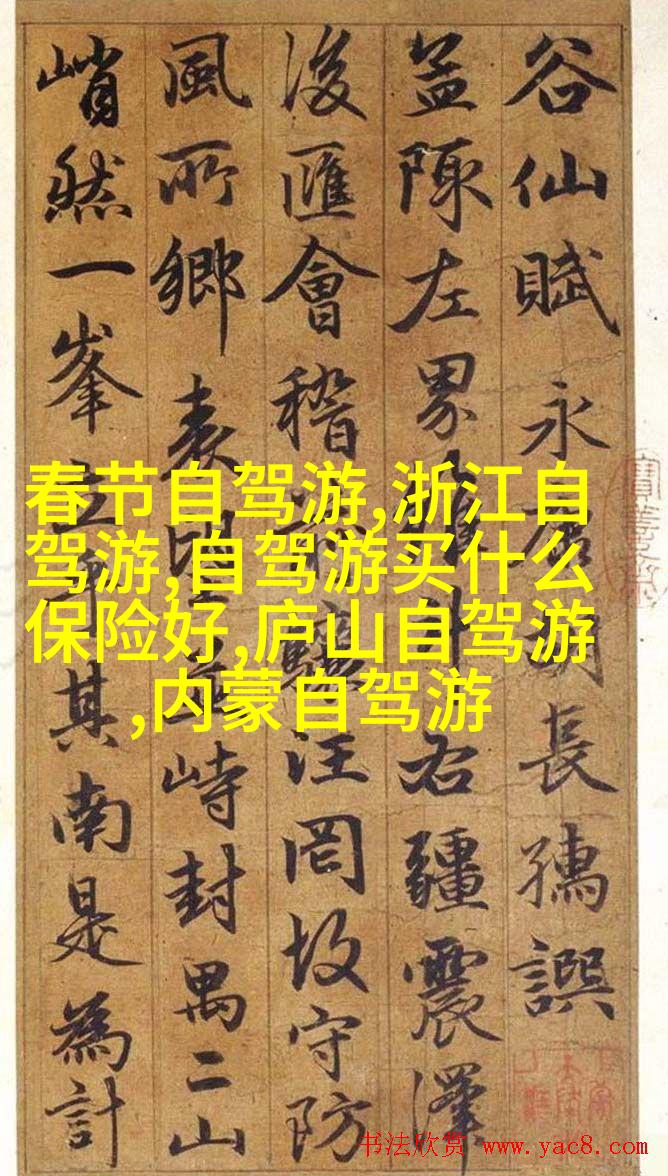 谷仙賦 永康胡長孺譔
盖陳左界 右疆震澤
浚匯會稽 汪罔故守防
風所鄉表望並峙封禺二山
峭然一峯立乎其南是為計
春节自驾游,浙江自
驾游,自驾游买什么
保险好,庐山自驾游
,内蒙自驾游
书法欣赏 www.yac8.com